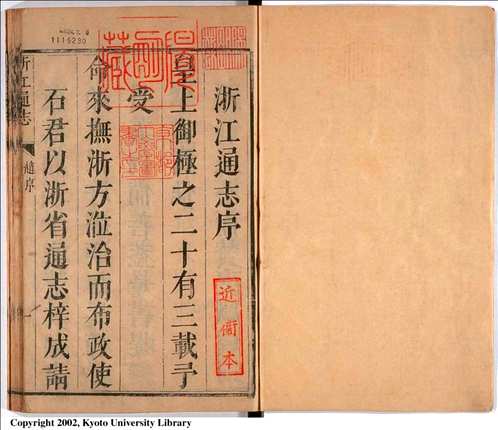 浙江通志序
皇上御極之二十有三載予
受
命來撫浙方涖治而布政使
石君以浙省通志梓成請
浙江通志
趙序
一
近衞本
1115230
Copyright 2002, Kyoto University Library